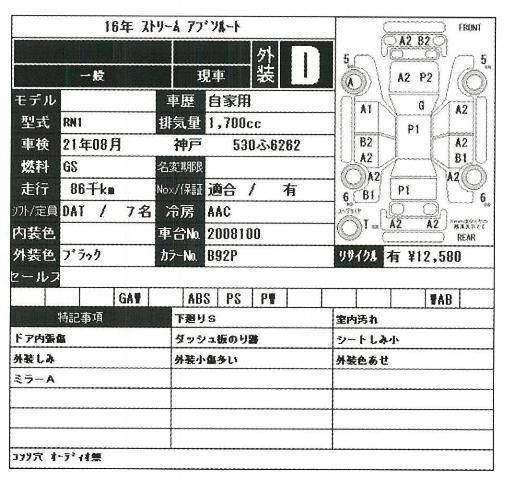 16年 ストリーム アブソルート
外装 D
一般 現車
モデル 車歴 自家用
型式 RN1 排気量 1,700cc
車検 21年08月 神戸 530ふ6262
燃料 GS 名変期限
走行 86千km Nox/保証 適合 / 有
ｼﾌﾄ/定員 DAT / 7名 冷房 AAC
内装色 車台No. 2008100
外装色 ブラック カラーNo. B92P
リサイクル 有 ¥12,580
セールス
GAW ABS PS PW WAB
FRONT
A2 B2
5 5
A A2 P2
A1 G A2
P1
B2 A2
A2 B1
6 A2 P1 A2 6
B1
T A2 A2
REAR
特記事項 下廻りS 室内汚れ
ドア内張傷 ダッシュ板のり跡 シートしみ小
外装しみ 外装小傷多い 外装色あせ
ミラーA
コツメ穴 オーディオ無